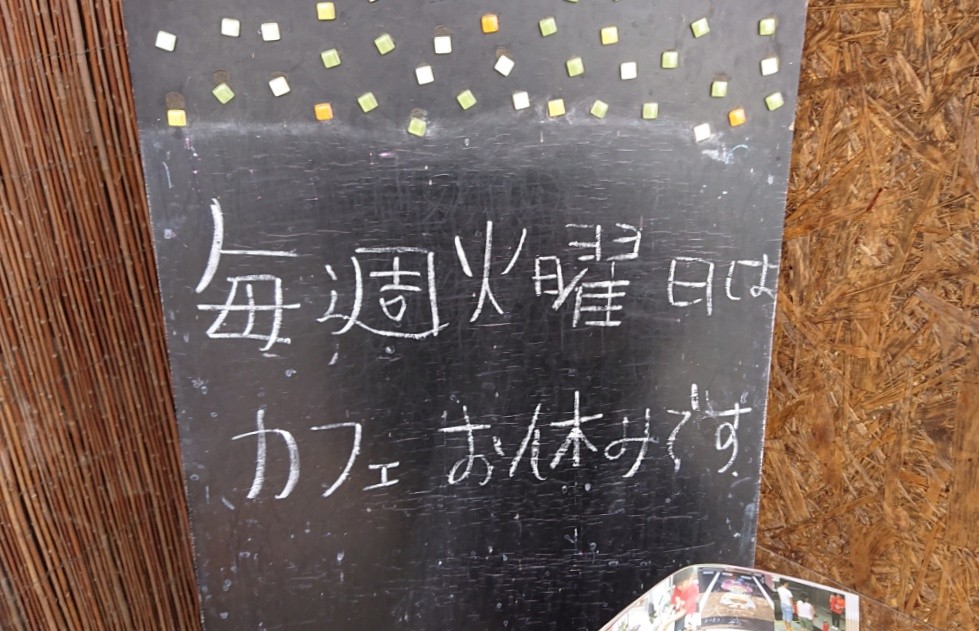 毎週火曜日は
カフェお休みです